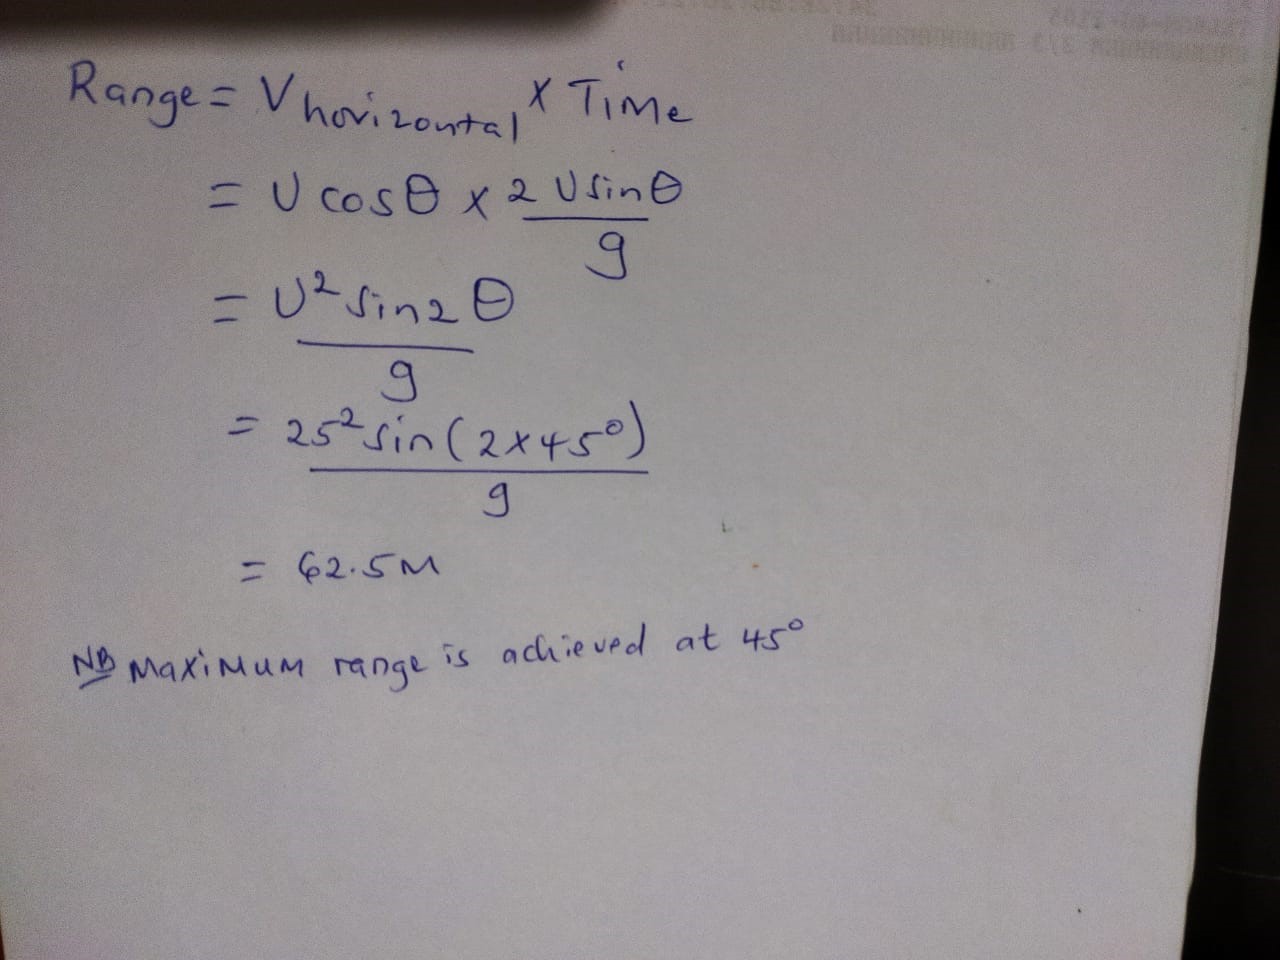 Range = V horizontal × Time
= U cosθ × 2 U sinθ / g
= U² sin2θ / g
= 25² sin(2×45°) / g
= 62.5M
NB Maximum range is achieved at 45°